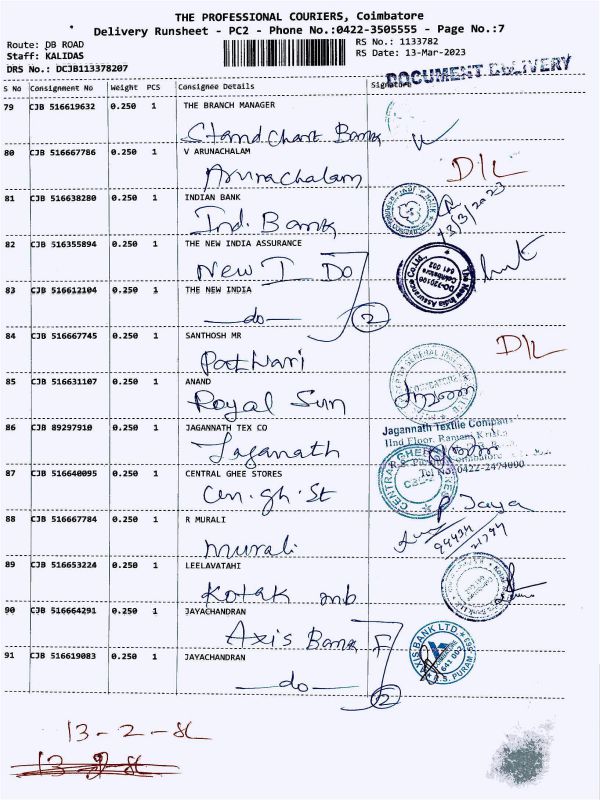 THE PROFESSIONAL COURIERS, Coimbatore
Delivery Runsheet - PC2 - Phone No.:0422-3505555 - Page No.:7
Route: DB ROAD
Staff: KALIDAS
DRS No.: DCJB113378207
RS No.: 1133782
RS Date: 13-Mar-2023
DOCUMENT DELIVERY
S No Consignment No Weight PCS Consignee Details Signature
79 CJB 516619632 0.250 1 THE BRANCH MANAGER
Stand Chart Bank
80 CJB 516667786 0.250 1 V ARUNACHALAM
Arunachalam D/L
81 CJB 516638280 0.250 1 INDIAN BANK
Ind. Bank 13/3/2023
82 CJB 516355894 0.250 1 THE NEW INDIA ASSURANCE
New I Do
The New India Assurance Co. Ltd.,
DO-720100
Coimbatore
641 002
83 CJB 516612104 0.250 1 THE NEW INDIA
do 2
84 CJB 516667745 0.250 1 SANTHOSH MR
D/L
85 CJB 516631107 0.250 1 ANAND
Royal Sun
GENERAL
COIMBATORE
86 CJB 89297910 0.250 1 JAGANNATH TEX CO
Jaganath
Jagannath Textile Company
IInd Floor,
Tel No:0422-2474000
87 CJB 516640095 0.250 1 CENTRAL GHEE STORES
Cen. gh. St
CENTRAL GHEE STORES
CBE-2
P. Jaya
88 CJB 516667784 0.250 1 R MURALI
Murali
89 CJB 516653224 0.250 1 LEELAVATAHI
Kotak mb
90 CJB 516664291 0.250 1 JAYACHANDRAN
Axis Bank
AXIS BANK LTD
641 002
R.S. PURAM
91 CJB 516619083 0.250 1 JAYACHANDRAN
do 2
13-2-